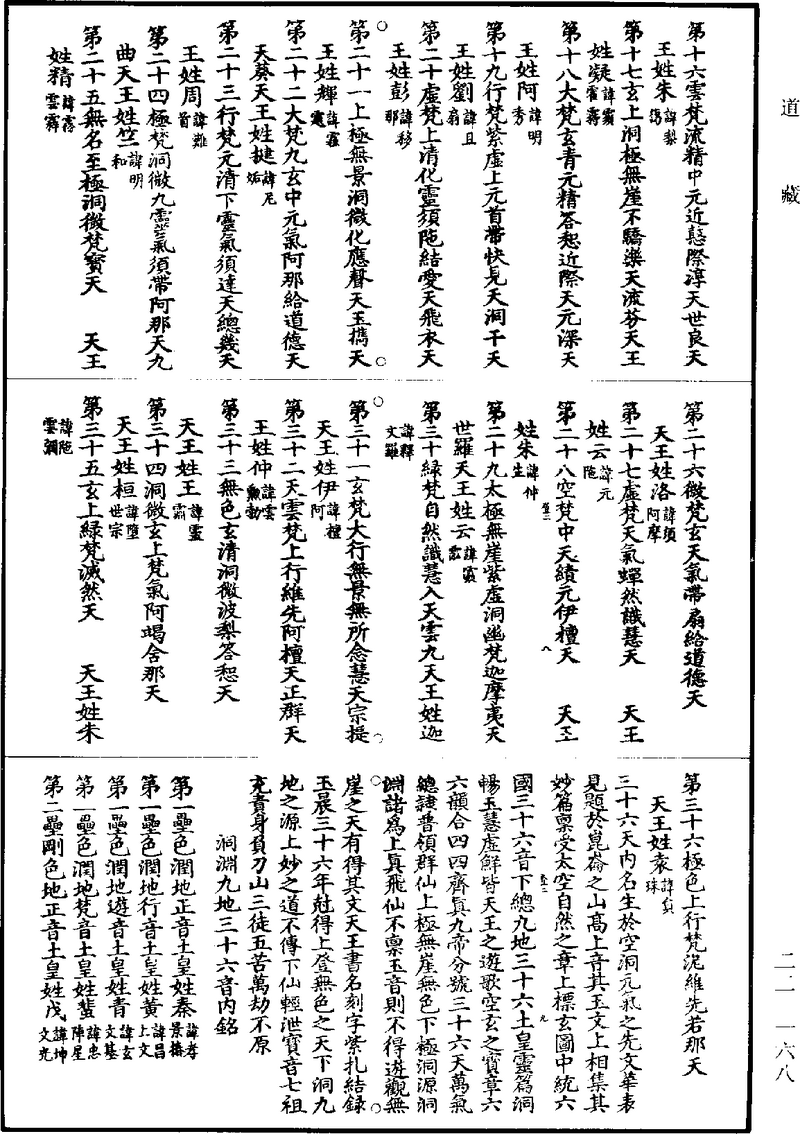 道藏
第十六雲梵流精中元近愆際淳天世良天
王姓朱諱梨
第十七玄上洞極無崖不驕樂天流芬天王
姓凝
第十八大梵玄青元精答恕近際天元深天
王姓阿諱明秀
第十九行梵紫虛上元首帶快見天洞干天
王姓劉諱且扇
第二十虛梵上清化靈須陁結愛天飛衣天
王姓彭諱移那
第二十一上極無景洞微化應聲天玉擕天
王姓輝諱
第二十二大梵九玄中元氣阿那給道德天
天葵天王姓揵諱尼妬
第二十三行梵元清下靈氣須達天總幾天
王姓周諱難首
第二十四極梵洞微九靈氣須帶阿那天九
曲天王姓竺諱明和
第二十五無名至極洞微梵寶天　天王
姓精諱
第二十六微梵玄天氣帶扇給道德天
天王姓洛諱須阿摩
第二十七虛梵天氣蟬然識慧天　天王
姓云諱元陁
第二十八空梵中天績元伊檀天　天王
姓朱諱仲生
第二十九太極無崖紫虛洞幽梵迦摩夷天
世羅天王姓云諱
第三十綠梵自然識慧入天雲九天王姓迦
諱釋文羅
第三十一玄梵大行無景無所念慧天宗提
天王姓伊諱檀阿
第三十二天雲梵上行維先阿檀天正群天
王姓仲諱雲勳勃
第三十三無色玄清洞微波梨答恕天
天王姓王諱靈
第三十四洞微玄上梵氣阿竭舍那天
天王姓桓諱墮世宗
第三十五玄上綠梵滅然天　天王姓朱
諱陁雲
第三十六極色上行梵泥維先若那天
天王姓袁諱員珠
三十六天內名生於空洞元氣之先文華表
見題於崑崙之山高上音其玉文上相集其
妙篇禀受太空自然之章上標玄圖中統六
國三十六音下總九地三十六土皇靈篇洞
暢玉慧虛鮮皆天王之遊歌空玄之寶章六
六韻合四四齊真九帝分號三十六天萬氣
總隷普領群仙上極無崖無色下極洞源洞
淵諸為上真飛仙不禀玉音則不得遊觀無
崖之天有得其文天王書名刻字紫札結錄
玉晨三十六年尅得上登無色之天下洞九
地之源上妙之道不傳下仙輕泄寶音七祖
充責身負刀山三徒五苦萬劫不原
洞淵九地三十六音內銘
第一壘色潤地正音土皇姓秦諱孝景椿
第一壘色潤地行音土皇姓黃諱昌上文
第一壘色潤地遊音土皇姓青諱玄文基
第一壘色潤地梵音土皇姓蜚諱忠陣星
第二壘剛色地正音土皇姓戊諱坤文光
二-一一六八